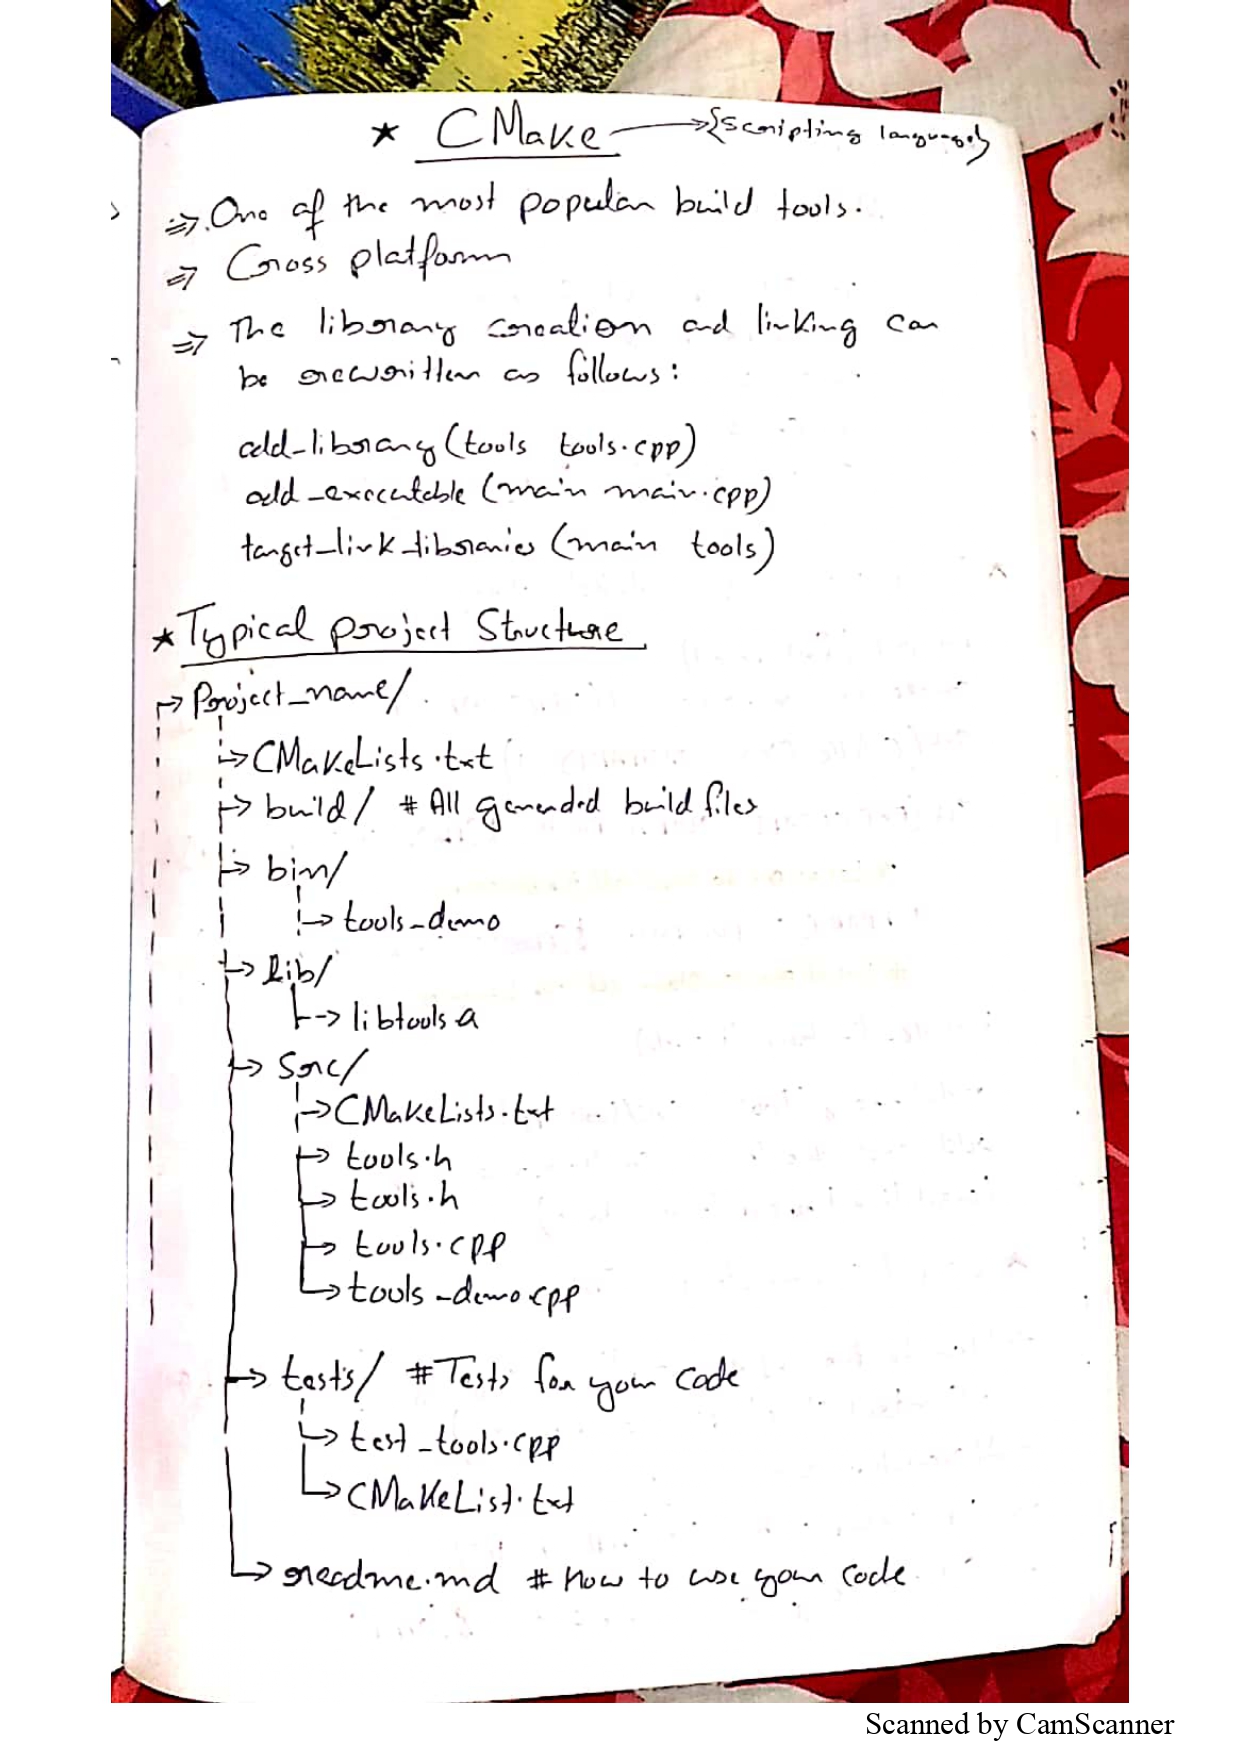 ★ CMake → {scripting language}
⇒ One of the most popular build tools.
⇒ Cross platform
⇒ The library creation and linking can
be rewritten as follows:
add_library (tools tools.cpp)
add_executable (main main.cpp)
target_link_libraries (main tools)
★ Typical project Structure
→ Project_name/
→ CMakeLists.txt
→ build/ # All generated build files
→ bin/
→ tools_demo
→ lib/
→ libtools.a
→ Src/
→ CMakeLists.txt
→ tools.h
→ tools.h
→ tools.cpp
→ tools_demo.cpp
→ tests/ # Tests for your code
→ test_tools.cpp
→ CMakeList.txt
→ readme.md # How to use your code
Scanned by CamScanner